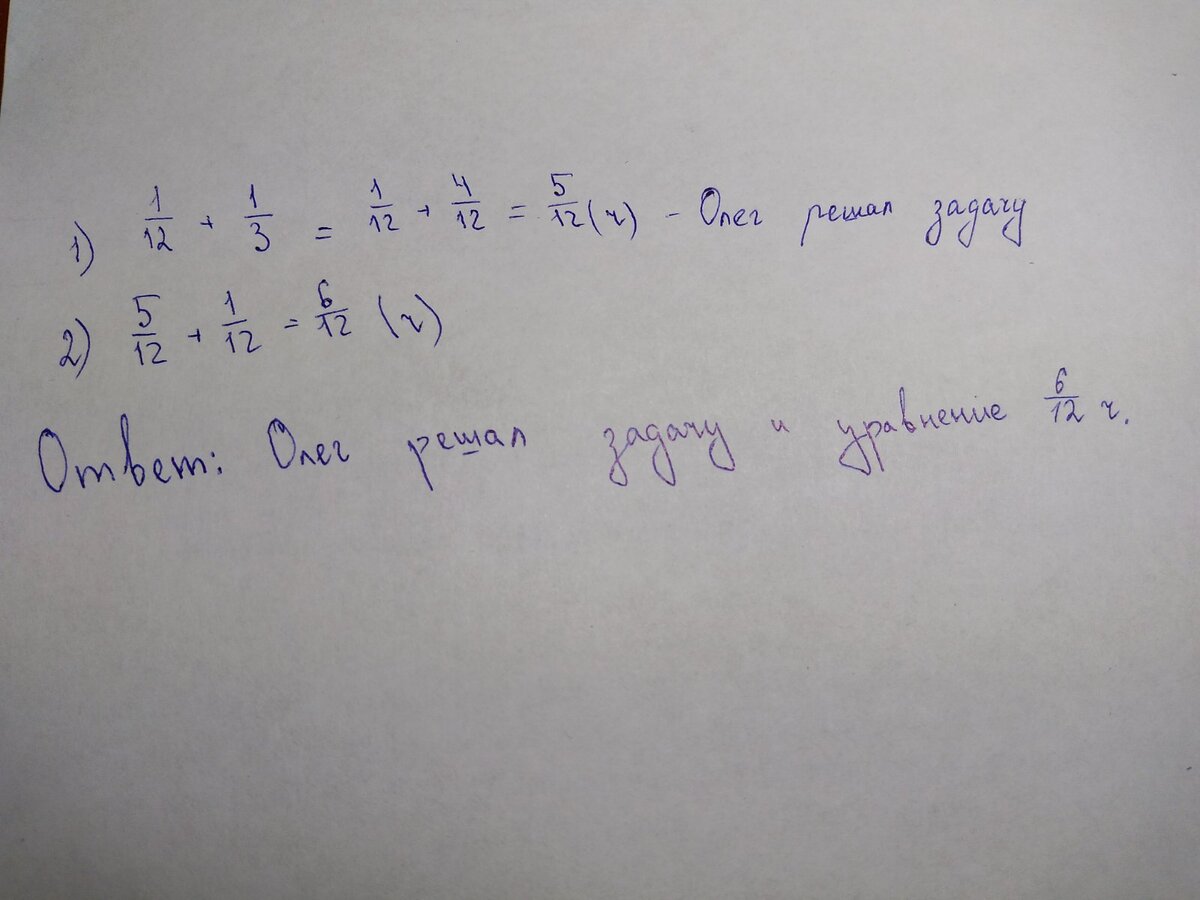 1) 1/12 + 1/3 = 1/12 + 4/12 = 5/12 (ч) - Олег решал задачу
2) 5/12 + 1/12 = 6/12 (ч)
Ответ: Олег решал задачу и уравнение 6/12 ч.